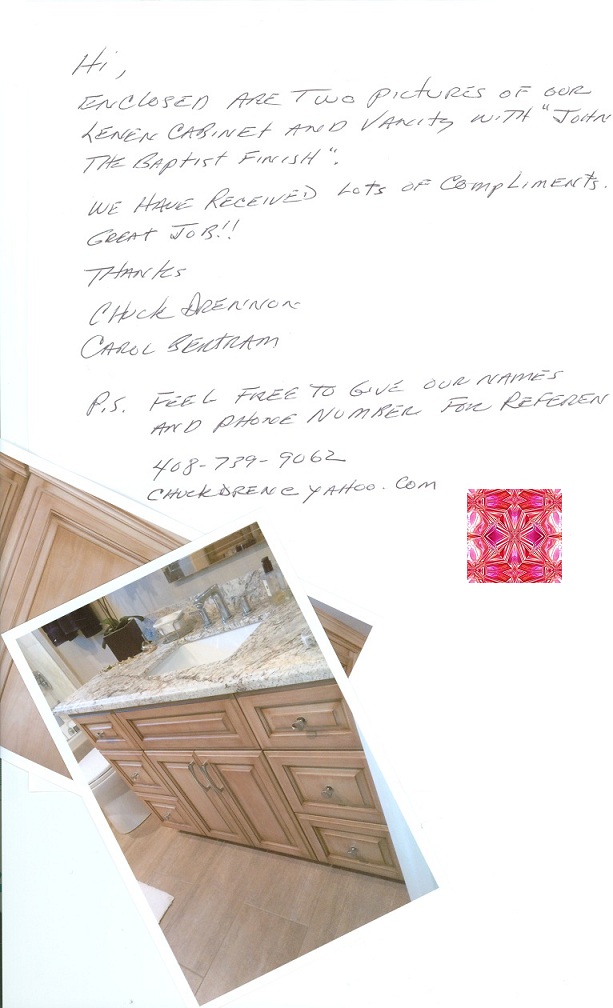 Hi,
ENCLOSED ARE TWO PICTURES OF OUR
LENEN CABINET AND VANITY WITH "JOHN
THE BAPTIST FINISH".
WE HAVE RECEIVED LOTS OF COMPLIMENTS.
GREAT JOB!!
THANKS
CHUCK DRENNON
CAROL BERTRAM
P.S. FEEL FREE TO GIVE OUR NAMES
AND PHONE NUMBER FOR REFEREN
408-739-9062
CHUCKDREN@YAHOO.COM